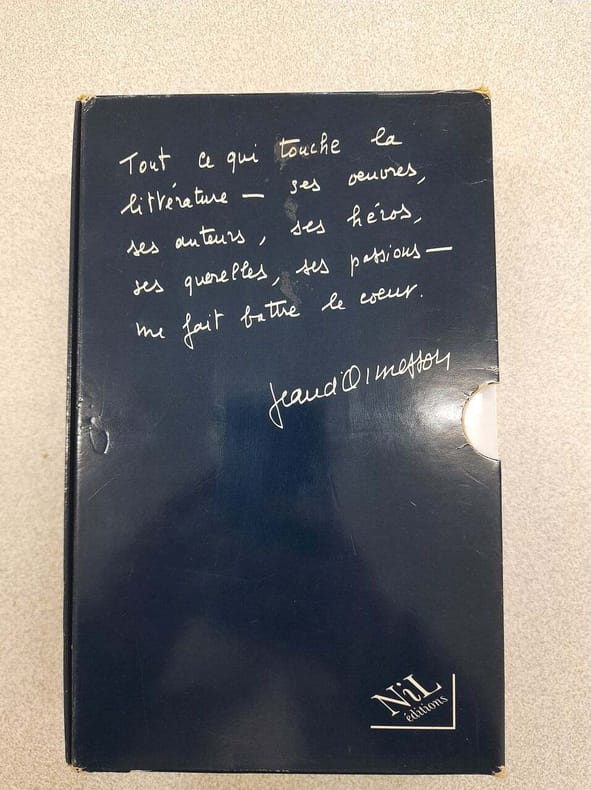 Tout ce qui touche la
littérature — ses oeuvres,
ses auteurs, ses héros,
ses querelles, ses passions —
me fait battre le coeur.
Jean d'Ormesson
NiL
éditions